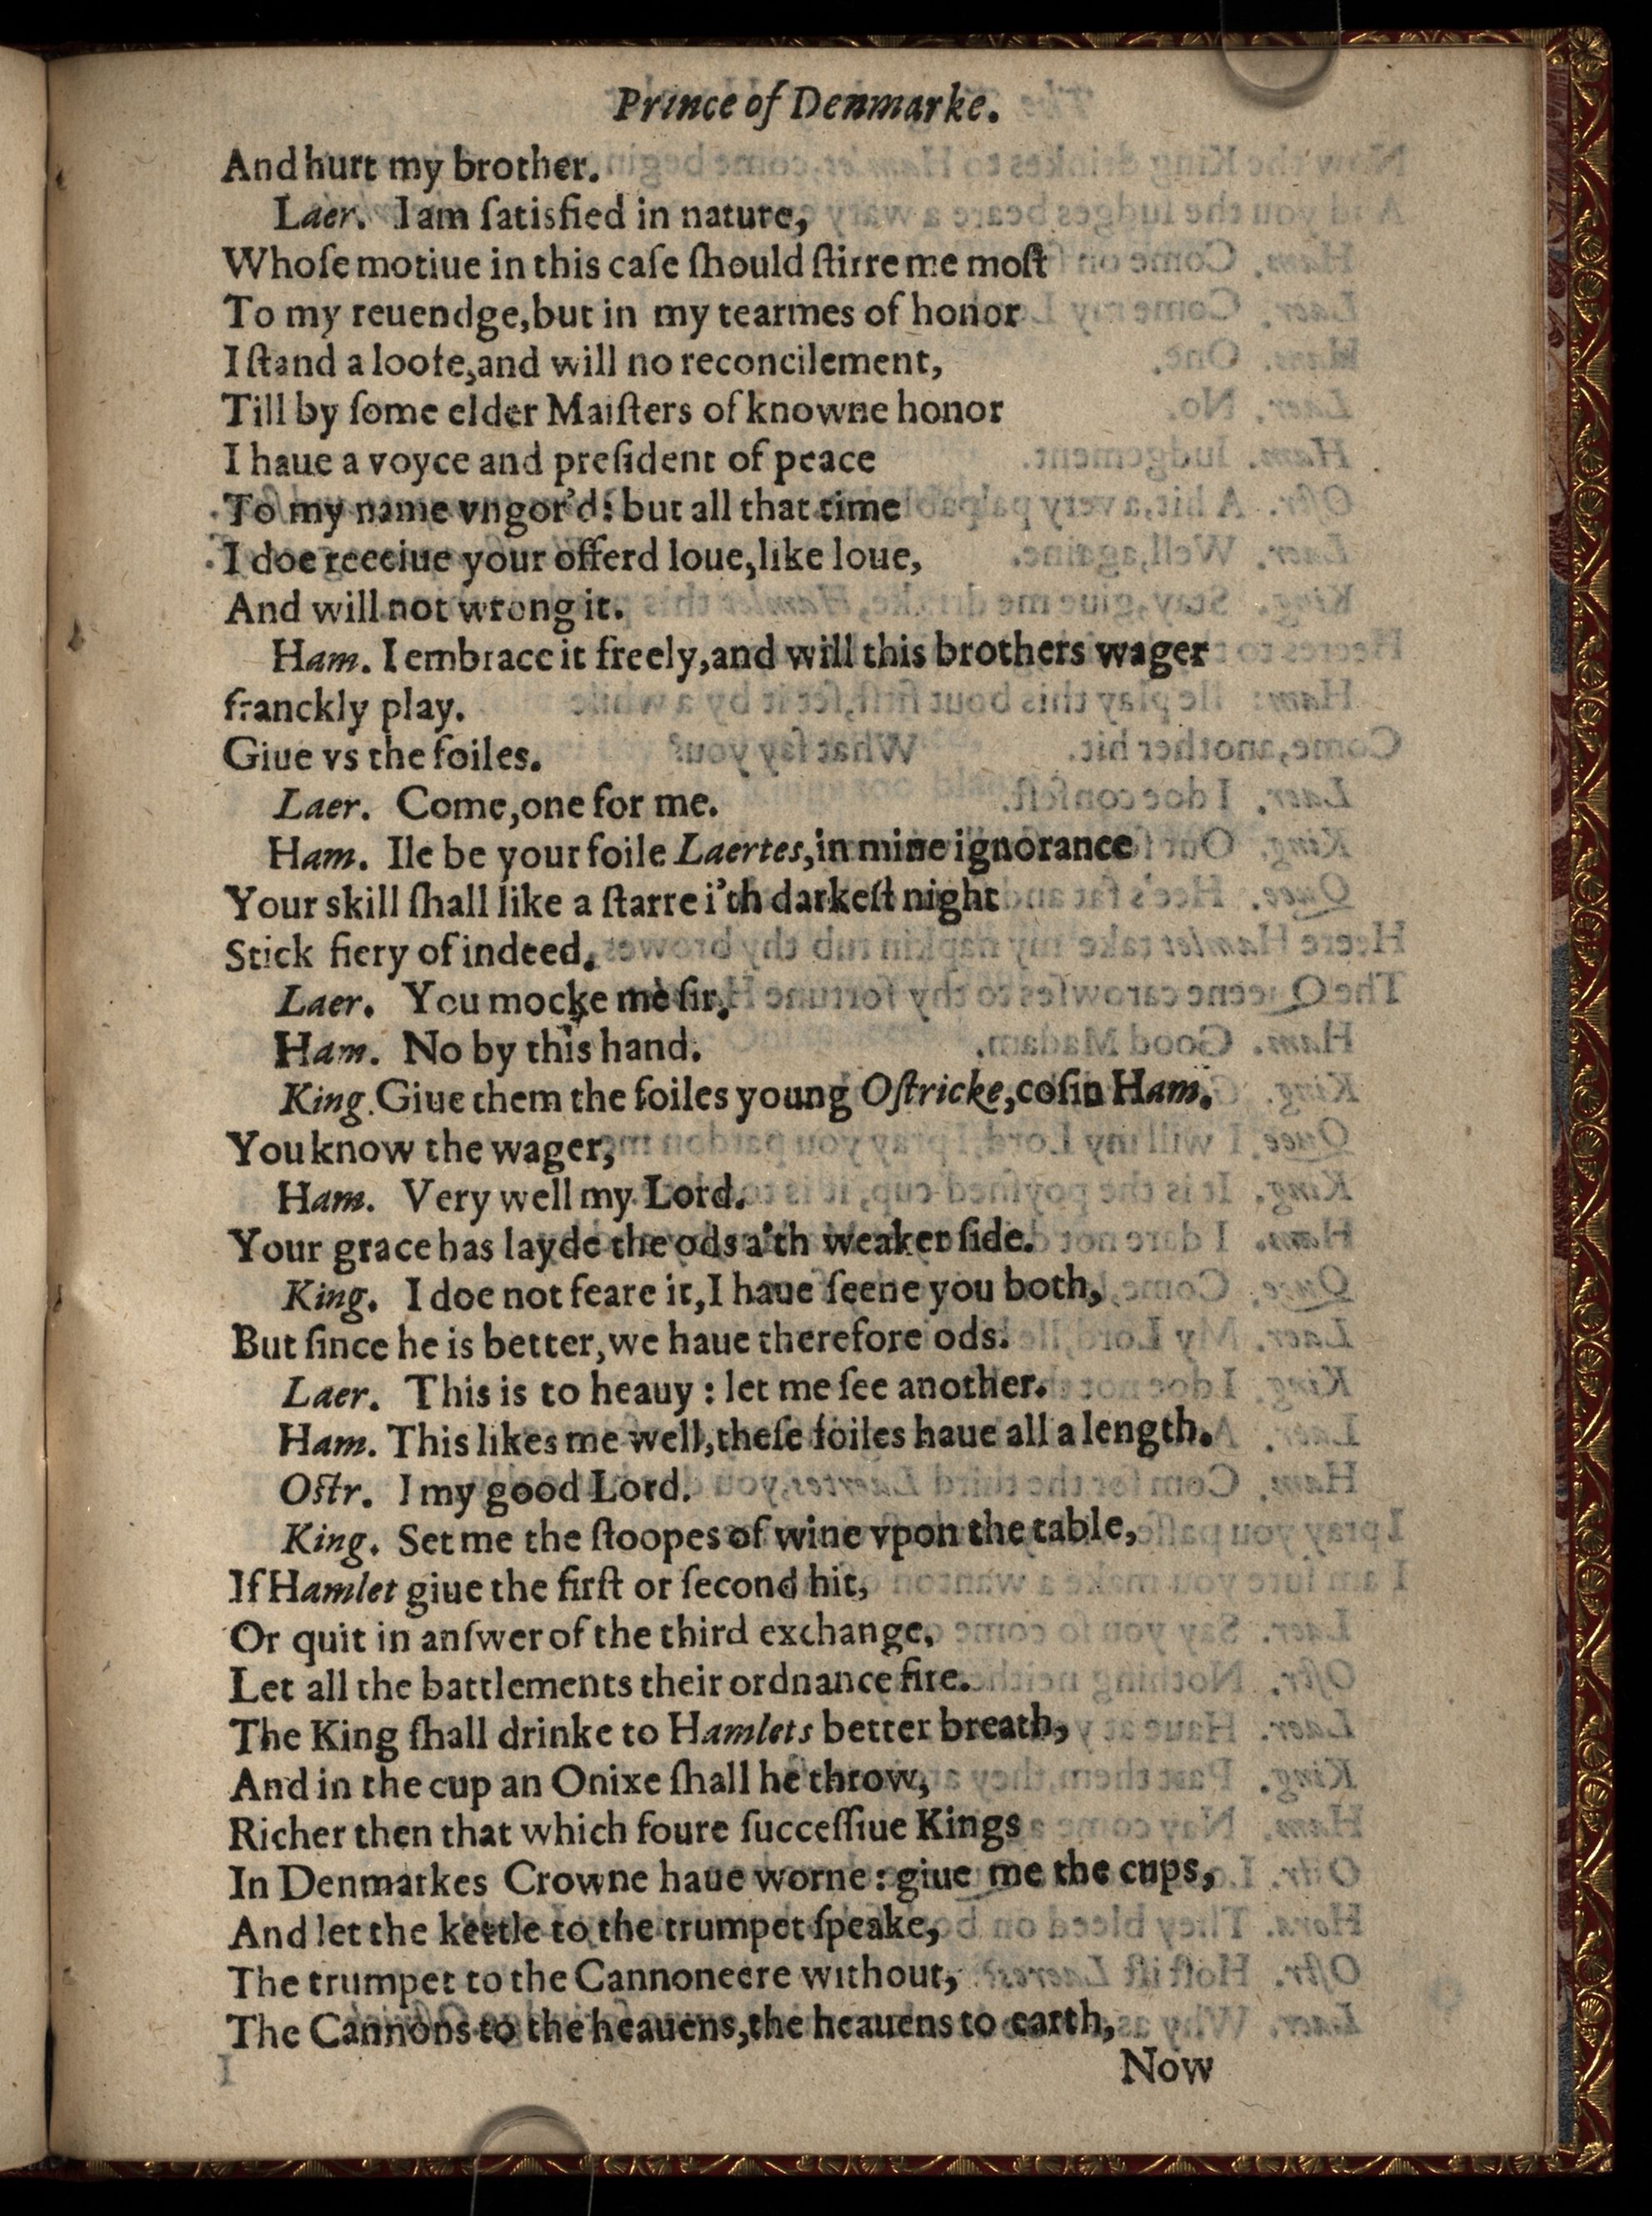 Prince of Denmarke.
And hurt my brother.
Laer. I am ſatisfied in nature,
Whoſe motiue in this caſe ſhould ſtirre me moſt
To my reuendge, but in my tearmes of honor
I ſtand a loofe, and will no reconcilement,
Till by ſome elder Maiſters of knowne honor
I haue a voyce and preſident of peace
To my name vngor'd: but all that time
I doe receiue your offerd loue, like loue,
And will not wrong it.
Ham. I embrace it freely, and will this brothers wager
franckly play.
Giue vs the foiles.
Laer. Come, one for me.
Ham. Ile be your foile Laertes, in mine ignorance
Your skill ſhall like a ſtarre i'th darkeſt night
Stick fiery of indeed.
Laer. You mocke me ſir.
Ham. No by this hand.
King. Giue them the foiles young Oſtricke, coſin Ham.
You know the wager,
Ham. Very well my Lord.
Your grace has layde the ods a'th weaker ſide.
King. I doe not feare it, I haue ſeene you both,
But ſince he is better, we haue therefore ods.
Laer. This is to heauy : let me ſee another.
Ham. This likes me well, theſe foiles haue all a length.
Oſtr. I my good Lord.
King. Set me the ſtoopes of wine vpon the table,
If Hamlet giue the firſt or ſecond hit,
Or quit in anſwer of the third exchange,
Let all the battlements their ordnance fire.
The King ſhall drinke to Hamlets better breath,
And in the cup an Onixe ſhall he throw,
Richer then that which foure ſucceſſiue Kings
In Denmarkes Crowne haue worne : giue me the cups,
And let the kettle to the trumpet ſpeake,
The trumpet to the Cannoneere without,
The Cannons to the heauens, the heauens to earth,
Now